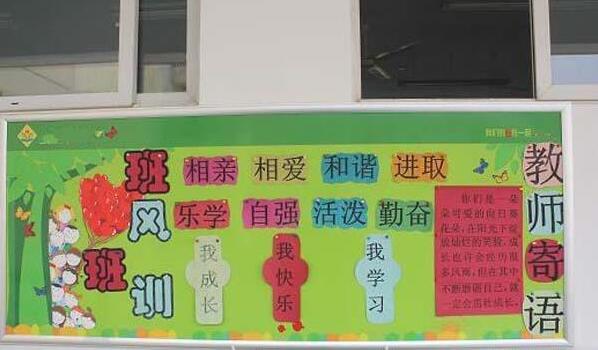 班风
班训
相亲 相爱 和谐 进取
乐学 自强 活泼 勤奋
我成长
我快乐
我学习
你们是一朵
朵可爱的向日葵
花朵,在阳光下绽
放灿烂的笑脸,成
长也许会经历很
多风雨,但在其中
不断磨砺自己,就
一定会茁壮成长。
教师寄语